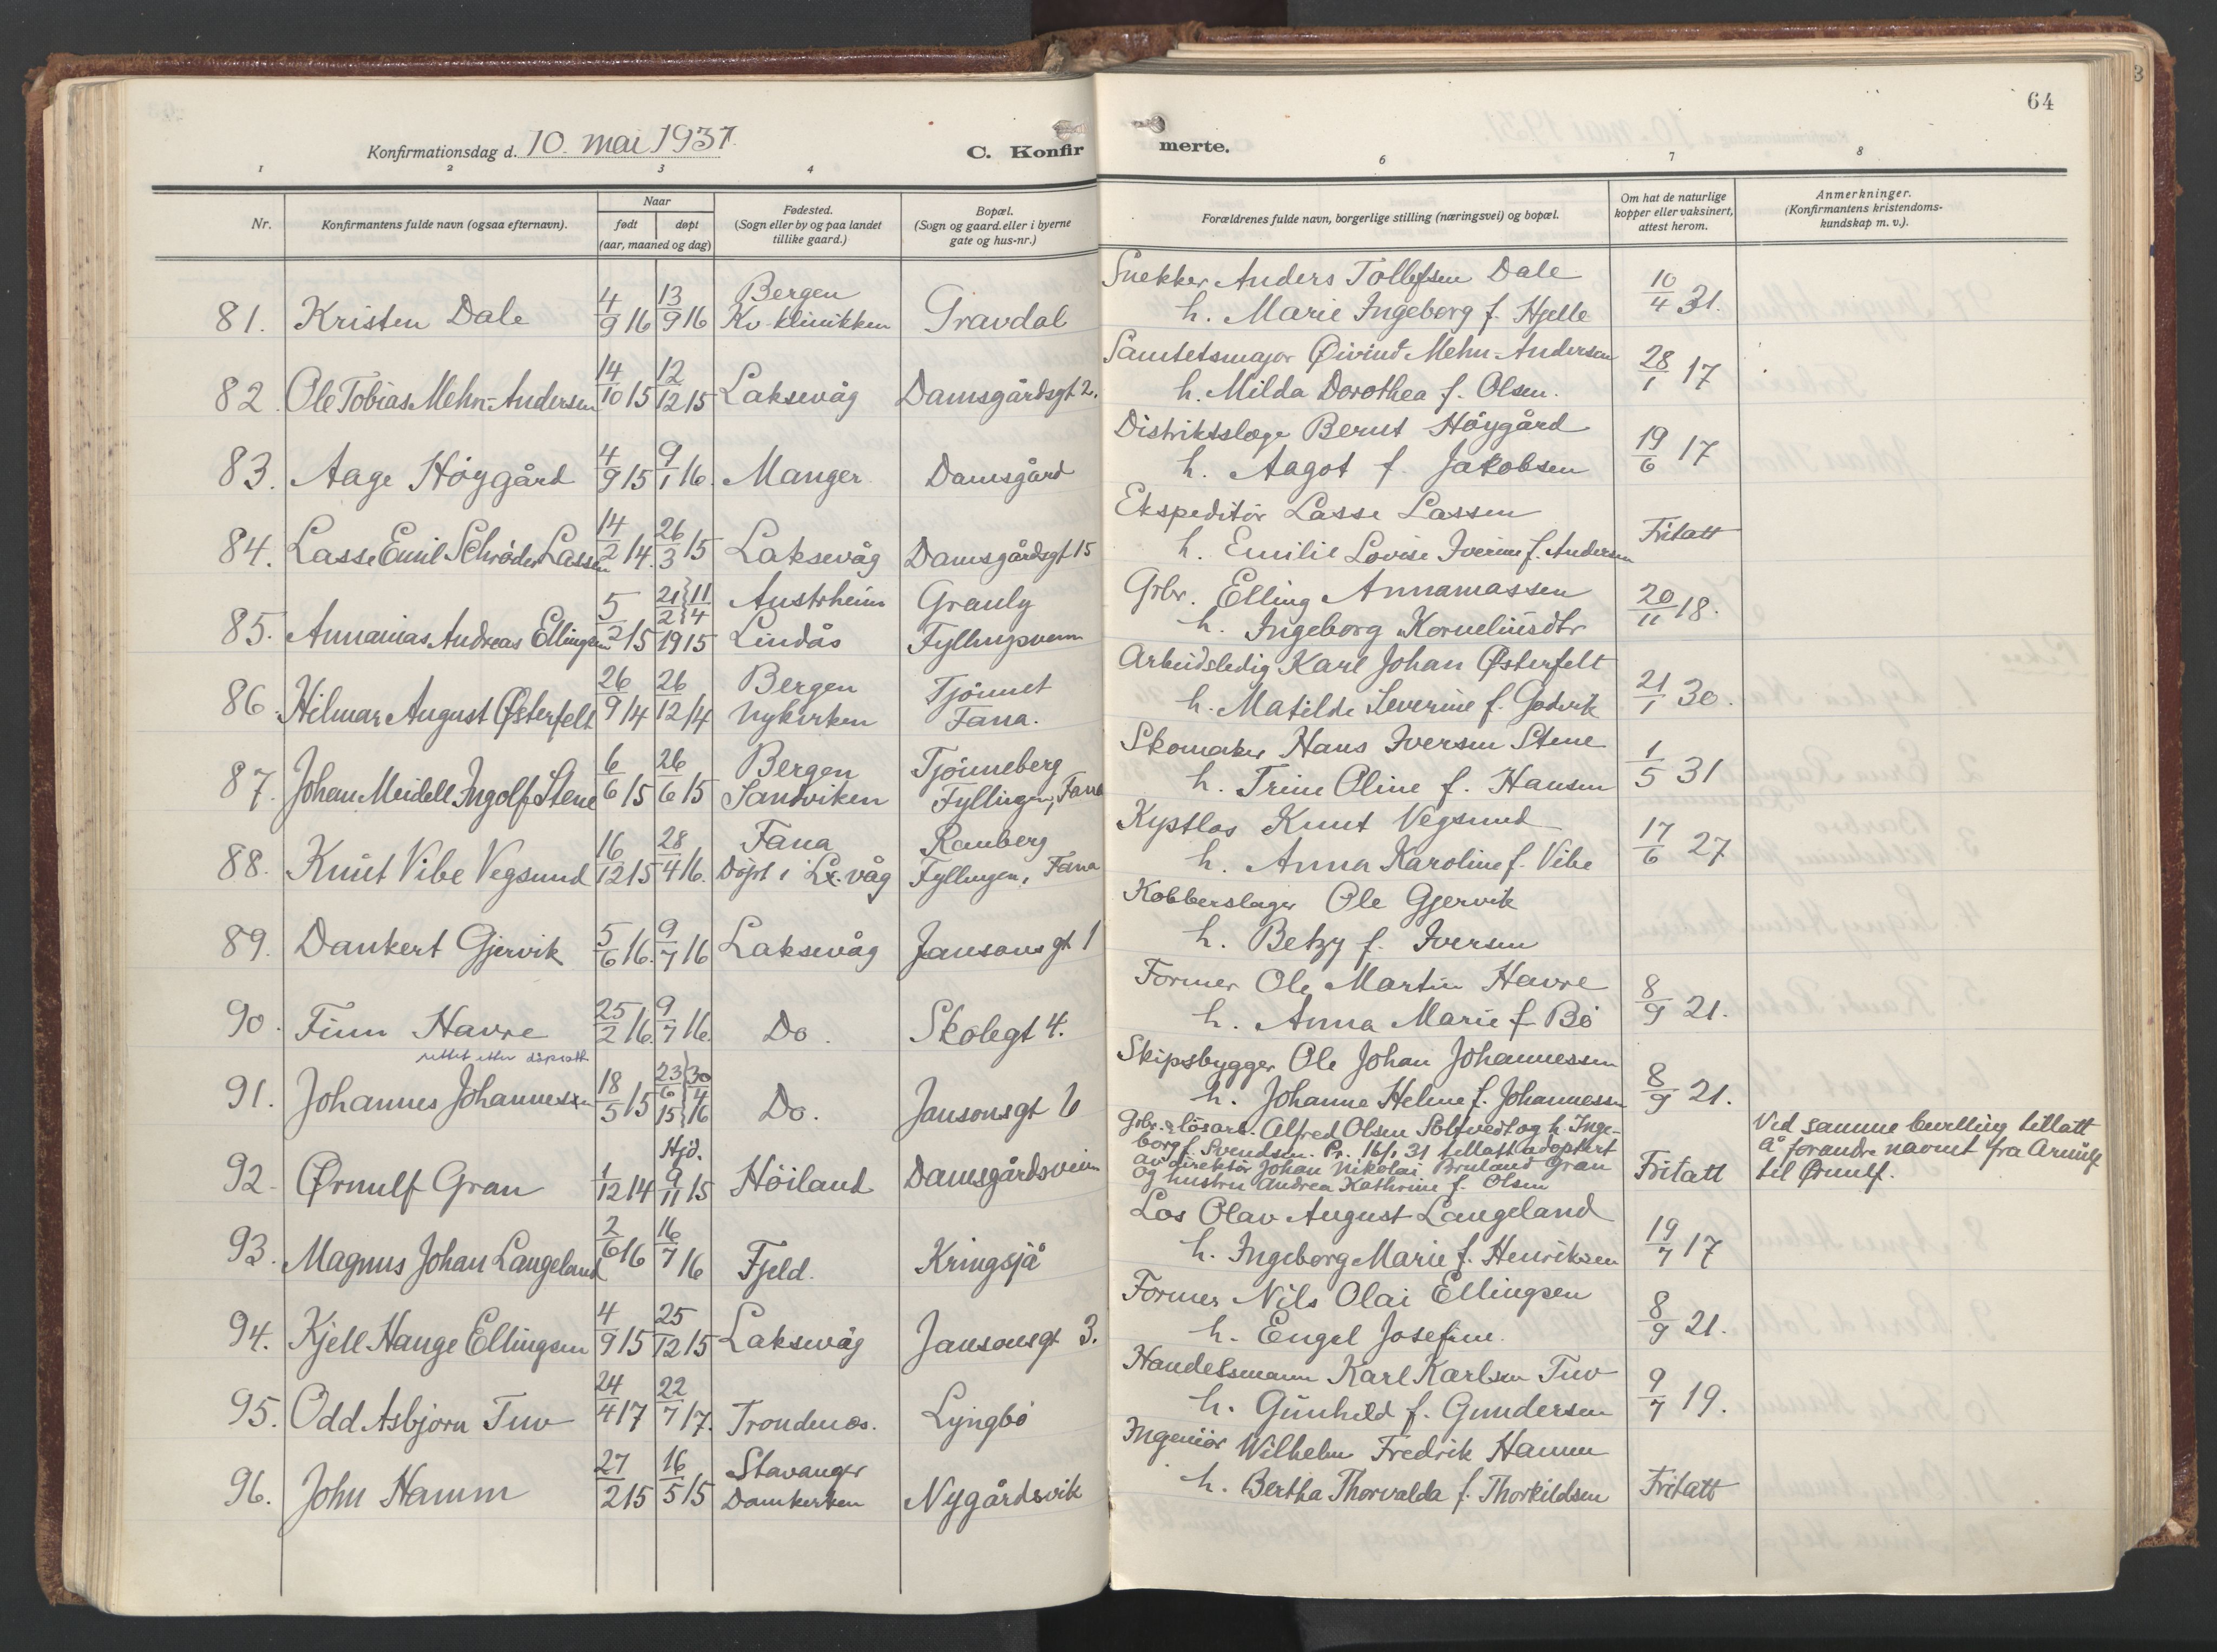 64
Konfirmationsdag d. 10. mai 1931.
C. Konfirmerte.
1 2 3 4 6 7 8
Nr.
Konfirmantens fulde navn (ogsaa efternavn).
Naar
født døpt
(aar, maaned og dag)
Fødested.
(Sogn eller by og paa landet
tillike gaard.)
Bopæl.
(Sogn og gaard. eller i byerne
gate og hus-nr.)
Forældrenes fulde navn, borgerlige stilling (næringsvei) og bopæl.
Om hat de naturlige
kopper eller vaksinert,
attest herom.
Anmerkninger.
(Konfirmantens kristendoms-
kundskap m. v.).
81. Kristen Dale 4/9 16 13/9 16 Bergen Kv. klinikken Gravdal
Snekker Anders Tollefsen Dale
h. Marie Ingeborg f. Hjelle 10/4 31.
82 Ole Tobias Mehn-Andersen 14/10 15 12/12 15 Laksevåg Damsgårdsgt 2.
Sanitetsmajor Øivind Mehn-Andersen
h. Milda Dorothea f. Olsen. 28/1 17
83. Aage Höygård 4/9 15 9/1 16. Manger Damsgård
Distriktslæge Bernt Höygård
h. Aagot f. Jakobsen 19/6 17
84. Lasse Emil Schröder Lassen 14/2 14. 26/3 15 Laksevåg Damsgårdsgt 15
Ekspeditör Lasse Lassen
h. Emilie Lovise Iverine f. Andersen Fritatt
85. Annanias Andreas Ellingsen 5/2 15 21/2 19 } 11/4 15 Austrheim Lindås Grauly
Grbr. Elling Annanassen
h. Ingeborg Korneliusdtr 20/11 18.
86. Hilmar August Østerfelt 26/9 14 26/12 14 Bergen Nykirken Tjönnet Fana.
Arbeidsledig Karl Johan Østerfelt
h. Matilde Severine f. Godvik 21/1 30.
87. Johan Meidell Ingolf Stene 6/6 15 26/6 15 Bergen Sandviken Tjönneberg Fyllingen, Fana
Skomaker Hans Iversen Stene
h. Trine Oline f. Hansen 1/5 31
88. Knut Vibe Vegsund 16/12 15 28/4 16. Fana Döpt i Lx.våg Ramberg Fyllingen, Fana
Kystlos Knut Vegsund
h. Anna Karoline f. Vibe 17/6 27
89. Dankert Gjervik 5/6 16. 9/7 16 Laksevåg Jansons gt 1
Kobberslager Ole Gjervik
h. Betzy f. Iversen
90. Finn Havre 25/2 16. 9/7 16. Do. Skolegt 4.
Former Ole Martin Havre
h. Anna Marie f. Bö 8/9 21.
rettet etter dåpsatt.
91. Johannes Johannessen 18/5 15 23/6 15 } 30/4 16 Do. Jansonsgt 6
Skipsbygger Ole Johan Johannessen
h. Johanne Helene f. Johannessen 8/9 21.
92. Ørnulf Gran 1/12 14 Hjd. 9/11 15 Höiland Damsgårdsveien
Grbr. & lösarb. Alfred Olsen Soltvedt og h. Inge-
borg f. Svendsen. Pr. 16/1.31 tillatt adoptert
av direktör Johan Nikolai Bruland Gran
og hustru Andrea Kathrine f. Olsen Fritatt
Ved samme bevilling tillatt
å forandre navnet fra Arnulf
til Ørnulf.
93. Magnus Johan Langeland 2/6 16 16/7 16 Fjeld. Kringsjå
Los Olav August Langeland
h. Ingeborg Marie f. Henriksen 19/7 17
94. Kjell Hauge Ellingsen 4/9 15 25/12 15 Laksevåg Jansonsgt 3.
Former Nils Olai Ellingsen
h. Engel Josefine. 8/9 21.
95. Odd Asbjörn Tuv 24/4 17 22/7 17. Trondenes. Lyngbö
Handelsmann Karl Karlsen Tuv
h. Gunhild f. Gundersen 9/7 19.
96. John Hamm 27/2 15 16/5 15 Stavanger Domkirken Nygårdsvik
Ingeniör Wilhelm Fredrik Hamm
h. Bertha Thorvalda f. Thorkildsen Fritatt